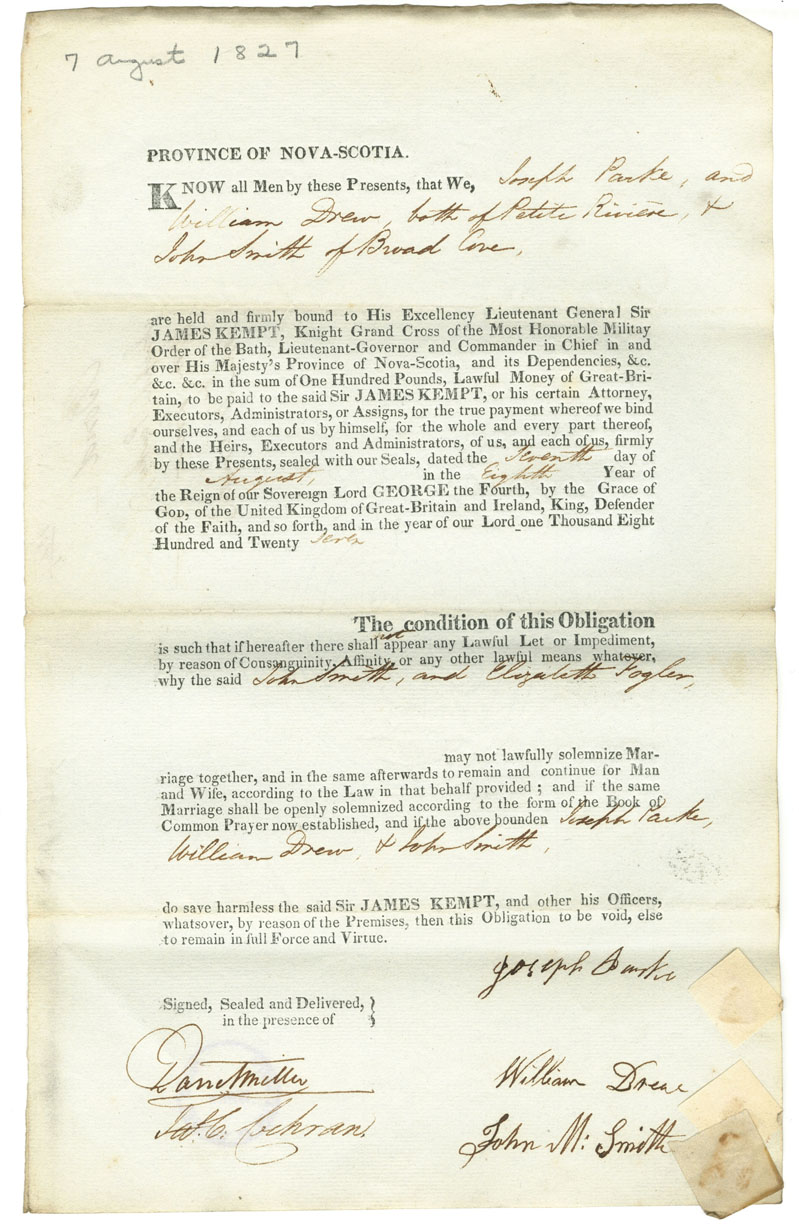 7 August 1827
PROVINCE OF NOVA-SCOTIA.
KNOW all Men by these Presents, that We, Joseph Parke, and
William Drew, both of Petite Rivière, &
John Smith of Broad Cove,
are held and firmly bound to His Excellency Lieutenant General Sir
JAMES KEMPT, Knight Grand Cross of the Most Honorable Militay
Order of the Bath, Lieutenant-Governor and Commander in Chief in and
over His Majesty's Province of Nova-Scotia, and its Dependencies, &c.
&c. &c. in the sum of One Hundred Pounds, Lawful Money of Great-Bri-
tain, to be paid to the said Sir JAMES KEMPT, or his certain Attorney,
Executors, Administrators, or Assigns, for the true payment whereof we bind
ourselves, and each of us by himself, for the whole and every part thereof,
and the Heirs, Executors and Administrators, of us, and each of us, firmly
by these Presents, sealed with our Seals, dated the Seventh day of
August, in the Eighth Year of
the Reign of our Sovereign Lord GEORGE the Fourth, by the Grace of
GOD, of the United Kingdom of Great-Britain and Ireland, King, Defender
of the Faith, and so forth, and in the year of our Lord one Thousand Eight
Hundred and Twenty Seven
The condition of this Obligation
is such that if hereafter there shall not appear any Lawful Let or Impediment,
by reason of Consanguinity, Affinity, or any other lawful means whatever,
why the said John Smith, and Elizabeth Fogler,
may not lawfully solemnize Mar-
riage together, and in the same afterwards to remain and continue for Man
and Wife, according to the Law in that behalf provided ; and if the same
Marriage shall be openly solemnized according to the form of the Book of
Common Prayer now established, and if the above bounden Joseph Parke,
William Drew, & John Smith,
do save harmless the said Sir JAMES KEMPT, and other his Officers,
whatsover, by reason of the Premises, then this Obligation to be void, else
to remain in full Force and Virtue.
Joseph Parke
Signed, Sealed and Delivered,
in the presence of
William Drew
Cochran
John M: Smith